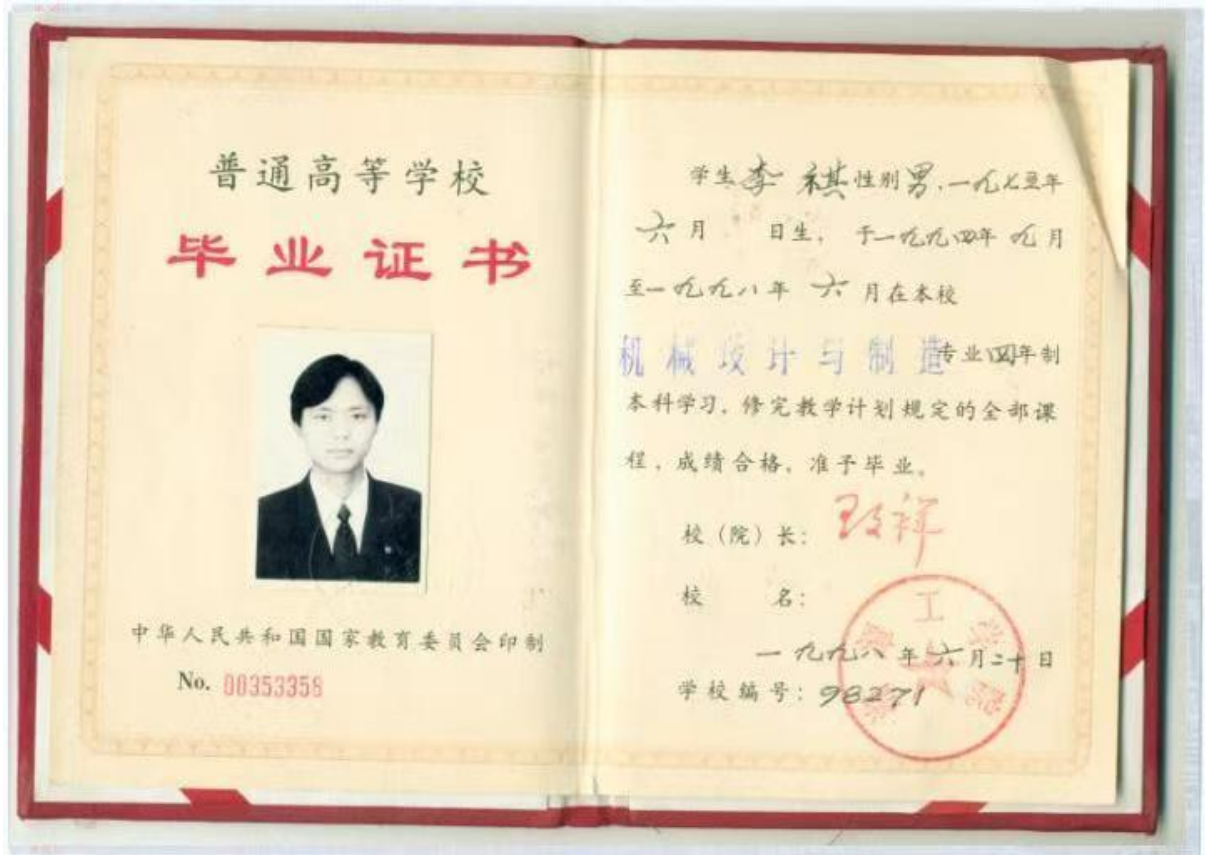 普通高等学校
毕业证书
中华人民共和国国家教育委员会印制
No. 00353358
学生 李祺 性别 男，一九七五年
六月 日生，于一九九四年九月
至一九九八年 六月在本校
机械设计与制造专业四年制
本科学习，修完教学计划规定的全部课
程，成绩合格，准予毕业。
校（院）长：
校 名：
一九九八年六月二十日
学校编号：98271
工学院